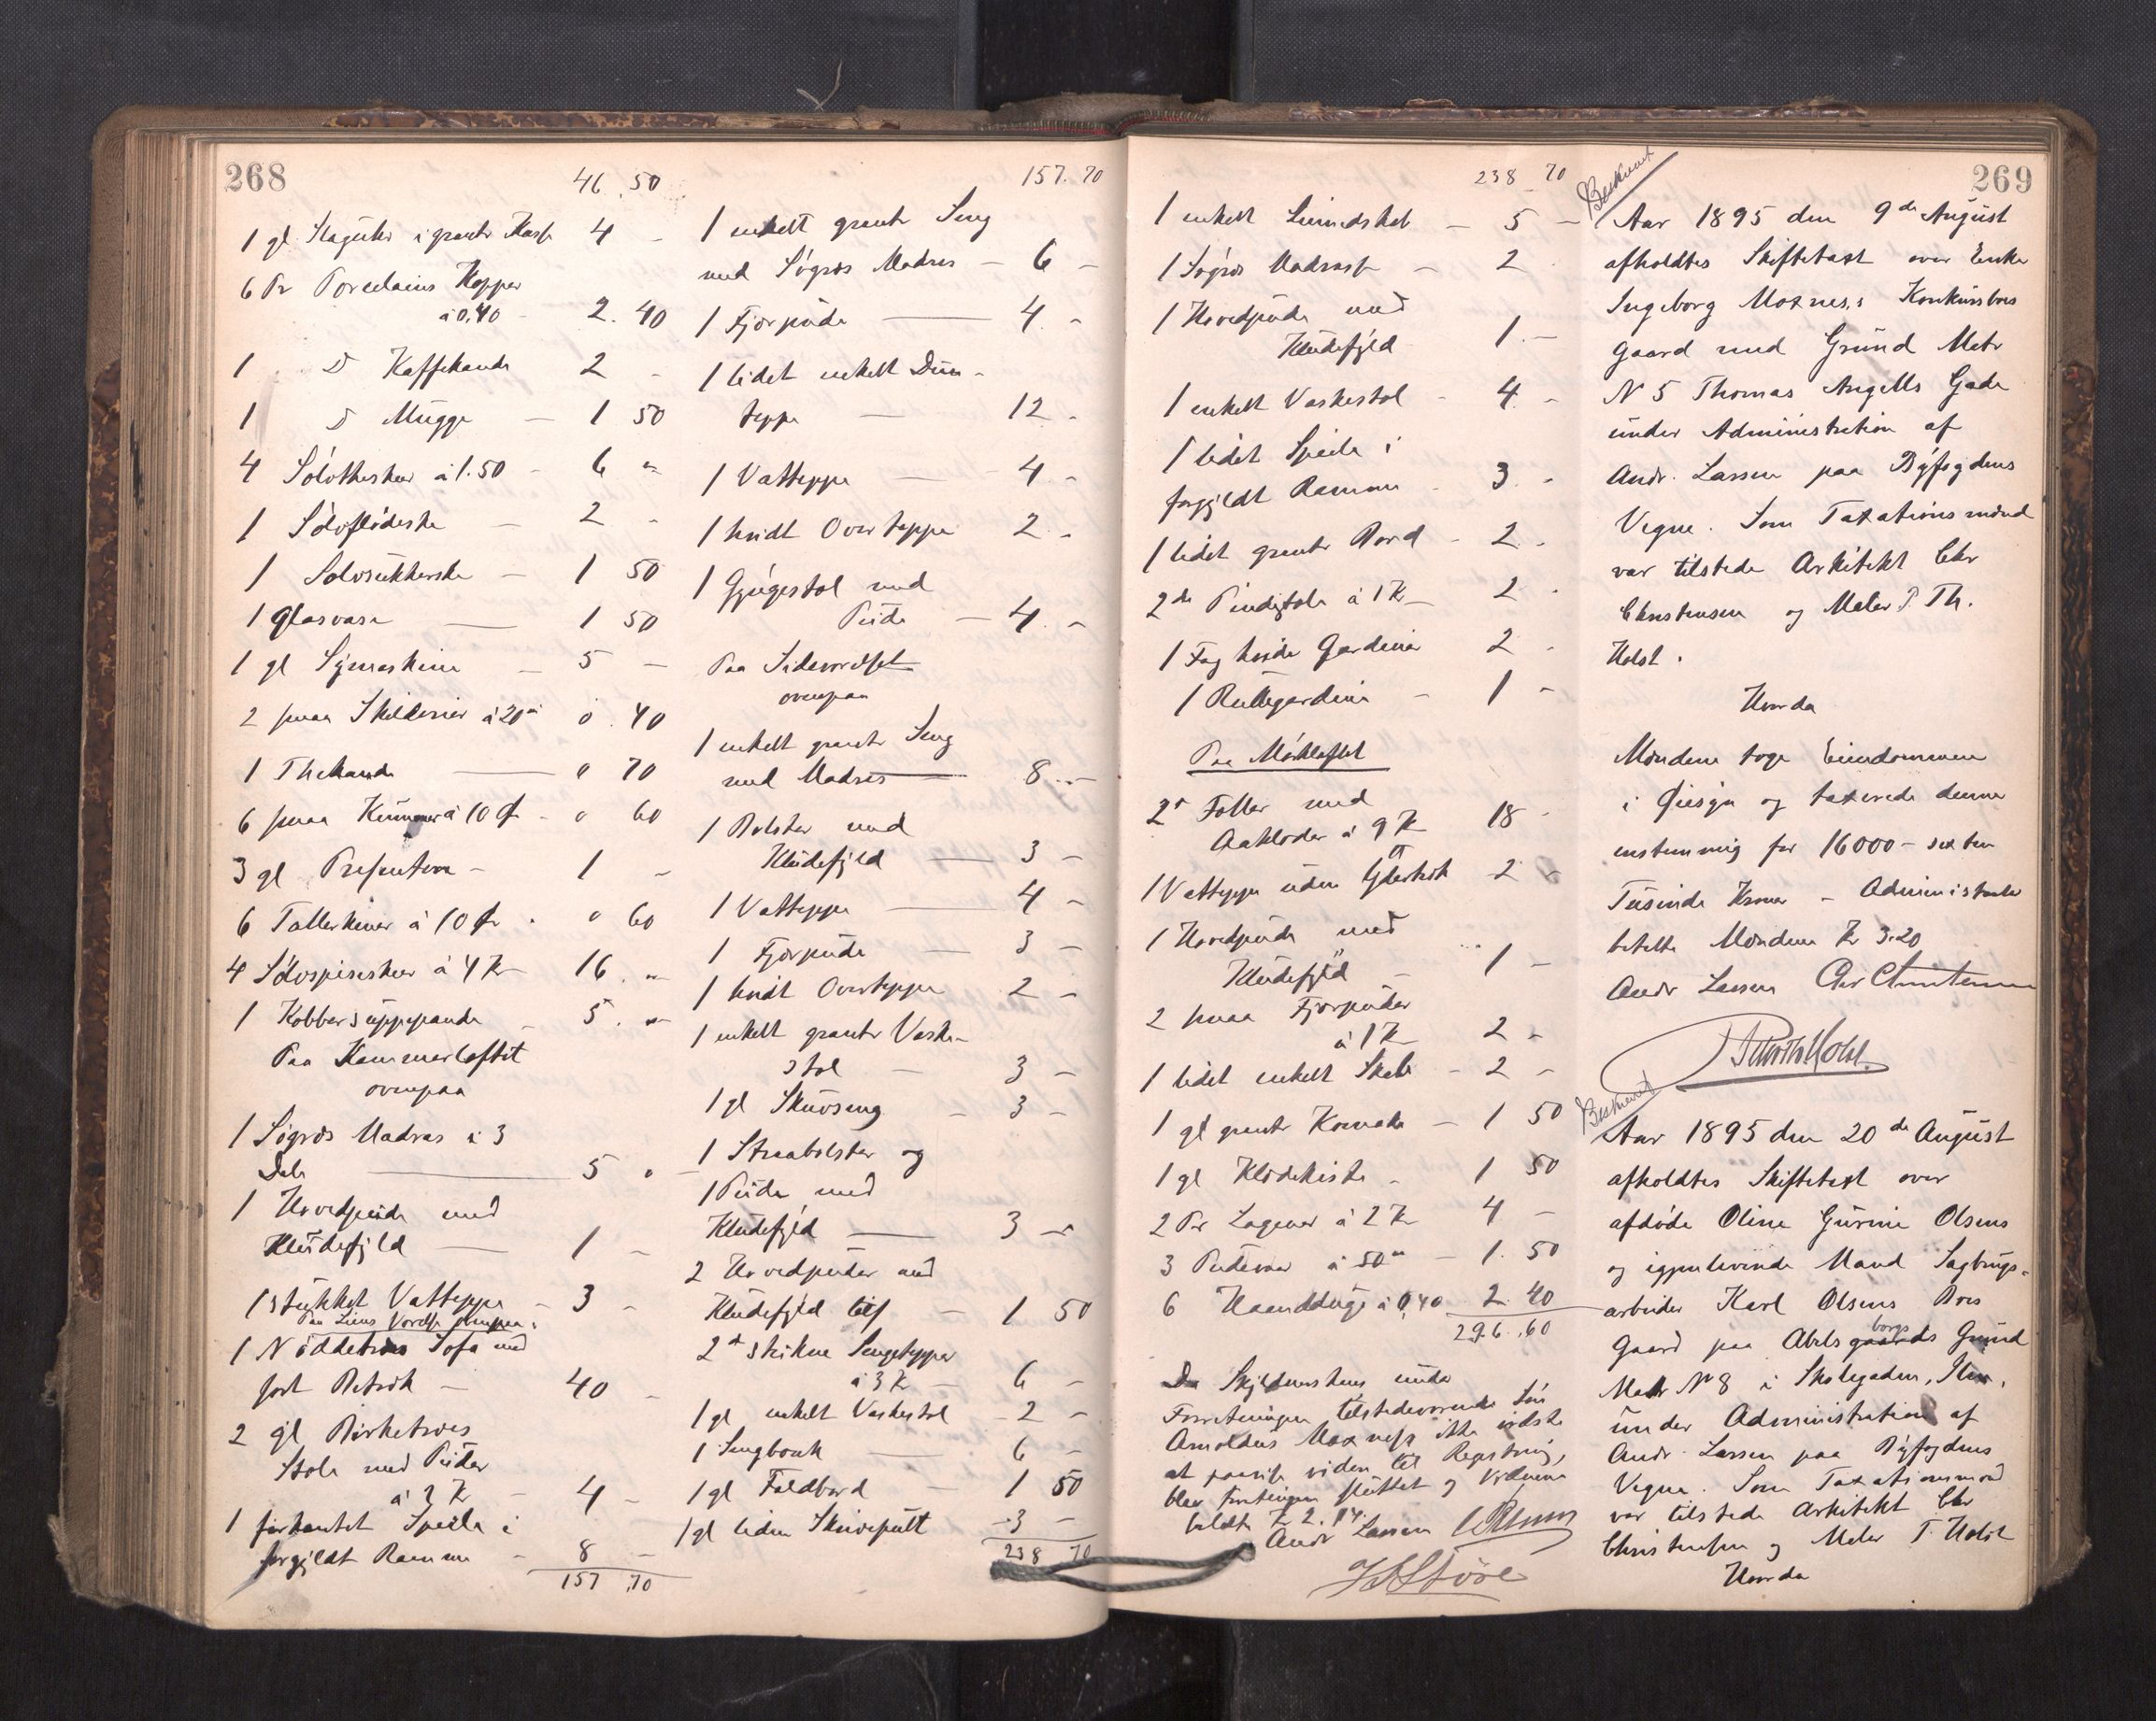 268
46.50
1 gl. Slaguhr i grantr Kasse 4 -
6 Pr Porcelains Kopper
à 0.40 - 2.40
1 D Kaffekande 2 -
1 D Mugge - 1 50
4 Sölvtheskeer à 1.50 - 6 "
1 Sölvflödeske - 2 -
1 Sölvsukkerske - 1 50
1 Glasvase - 1 50
1 gl Symaskine - 5 -
2 smaa Skilderier à 20 ø 0.40
1 Thekande - " 70
6 smaa Kummer à 10 ø - " 60
3 gl Presenteer - 1 -
6 Tallerkener à 10 ø - " 60
4 Sölvspiseskeer à 4 Kr 16 "
1 Kobbersuppepande - 5. "
Paa Kammerloftet
ovenpaa
1 Søgræs Madras i 3
Dele - 5 "
1 Hovedpude med
Kludefyld - 1 -
1 stykket Vatteppe - 3 -
ovenpaa
1 Nöddetræs Sofa med
sort Betræk - 40 -
2 gl Birketræs
Stole med Puder
à 2 Kr - 4 -
1 firkantet Speile i
forgyldt Ramme - 8 -
157.70
157.70
1 enkelt grantr Seng
med Søgræs Madras - 6 -
1 Fjærpude - 4 -
1 lidet enkelt Dun-
teppe - 12 -
1 Vatteppe - 4 -
1 hvidt Overteppe 2 -
1 Gyngestol med
Pude - 4 -
Paa Sideværelset
ovenpaa
1 enkelt grantr Seng
med Madras - 8 -
1 Bolster med
Kludefyld - 3 -
1 Vatteppe - 4 -
1 Fjærpude - 3 -
1 hvidt Overteppe 2 -
1 enkelt grantr Vaske-
stol - 3 -
1 gl Skuvseng - 3 -
1 Straabolster og
1 Pude med
Kludefyld - 3 -
2 Hovedpuder med
Kludefyld tils - 1 50
2 strikne Sengetepper
à 3 Kr - 6 -
1 gl enkelt Vaskestol - 2 -
1 Sengbænk - 6 -
1 gl Foldbord - 1 50
1 gl liden Skrivepult - 3 -
238 70
238 70
1 enkelt Linnedskab - 5 -
1 Søgræs Madrass - 2 -
1 Hovedpude med
Kludefyld 1 -
1 enkelt Vaskestol - 4 -
1 lidet Speile i
forgyldt Ramme - 3 -
1 lidet grantr Bord - 2 -
2de Pindestole à 1 Kr - 2 -
1 Fag hvide Gardiner 2 -
1 Rullegardine - 1 -
Paa Mörkloftet
2 Feller med
Aaklæder à 9 Kr 18 -
1 Vatteppe uden Ydertræk 2 -
1 Hovedpude med
Kludefyld - 1 -
2 smaa Fjærpuder
à 1 Kr 2 -
1 lidet enkelt Skab - 2 -
1 gl grantr Komode - 1 50
1 gl Klædekiste - 1 50
2 Par Lagener à 2 Kr 4 -
3 Pudevaar à 50 ø - 1.50
6 Haandduge à 0,40 2.40
296.60
Da Skyldnerskens under
Forretningen tilstedeværende Søn
Arnoldus Moxness ikke vidste
at paavise viden til Registrering,
blev Forretningen sluttet og Vidnerne
betalt Kr 2.14.
Andr Lassen
269
Beskrevet
Aar 1895 den 9de August
afholdtes Skiftetaxt over Enke
Ingeborg Moxness Konkursbos
Gaard med Grund Matr
N 5 Thomas Angells Gade
under Administration af
Andr. Lassen paa Byfogdens
Vegne. Som Taxationsmænd
var tilstede Arkitekt Chr
Christensen og Maler P. Th.
Holst.
Hvorda
Mændene toge Eiendommen
i Øiesyn og taxerede denne
enstemmig for 16000 - sexten
Tusinde Kroner - Administrator
betalte Mændene Kr 3.20
Andr Lassen Chr Christensen
P. Th Holst.
Beskrevet
Aar 1895 den 20de August
afholdtes Skiftetaxt over
afdöde Oline Gurine Olsens
og igjenlevende Mand Sagbrugs-
arbeider Karl Olsens Bos
Gaard paa Abelsborgs Grund
Matr N 8 i Skolegaden, Ilen,
under Administration af
Andr. Lassen paa Byfogdens
Vegne. Som Taxationsmænd
var tilstede Arkitekt Chr
Christensen og Maler T. Holst
Hvorda